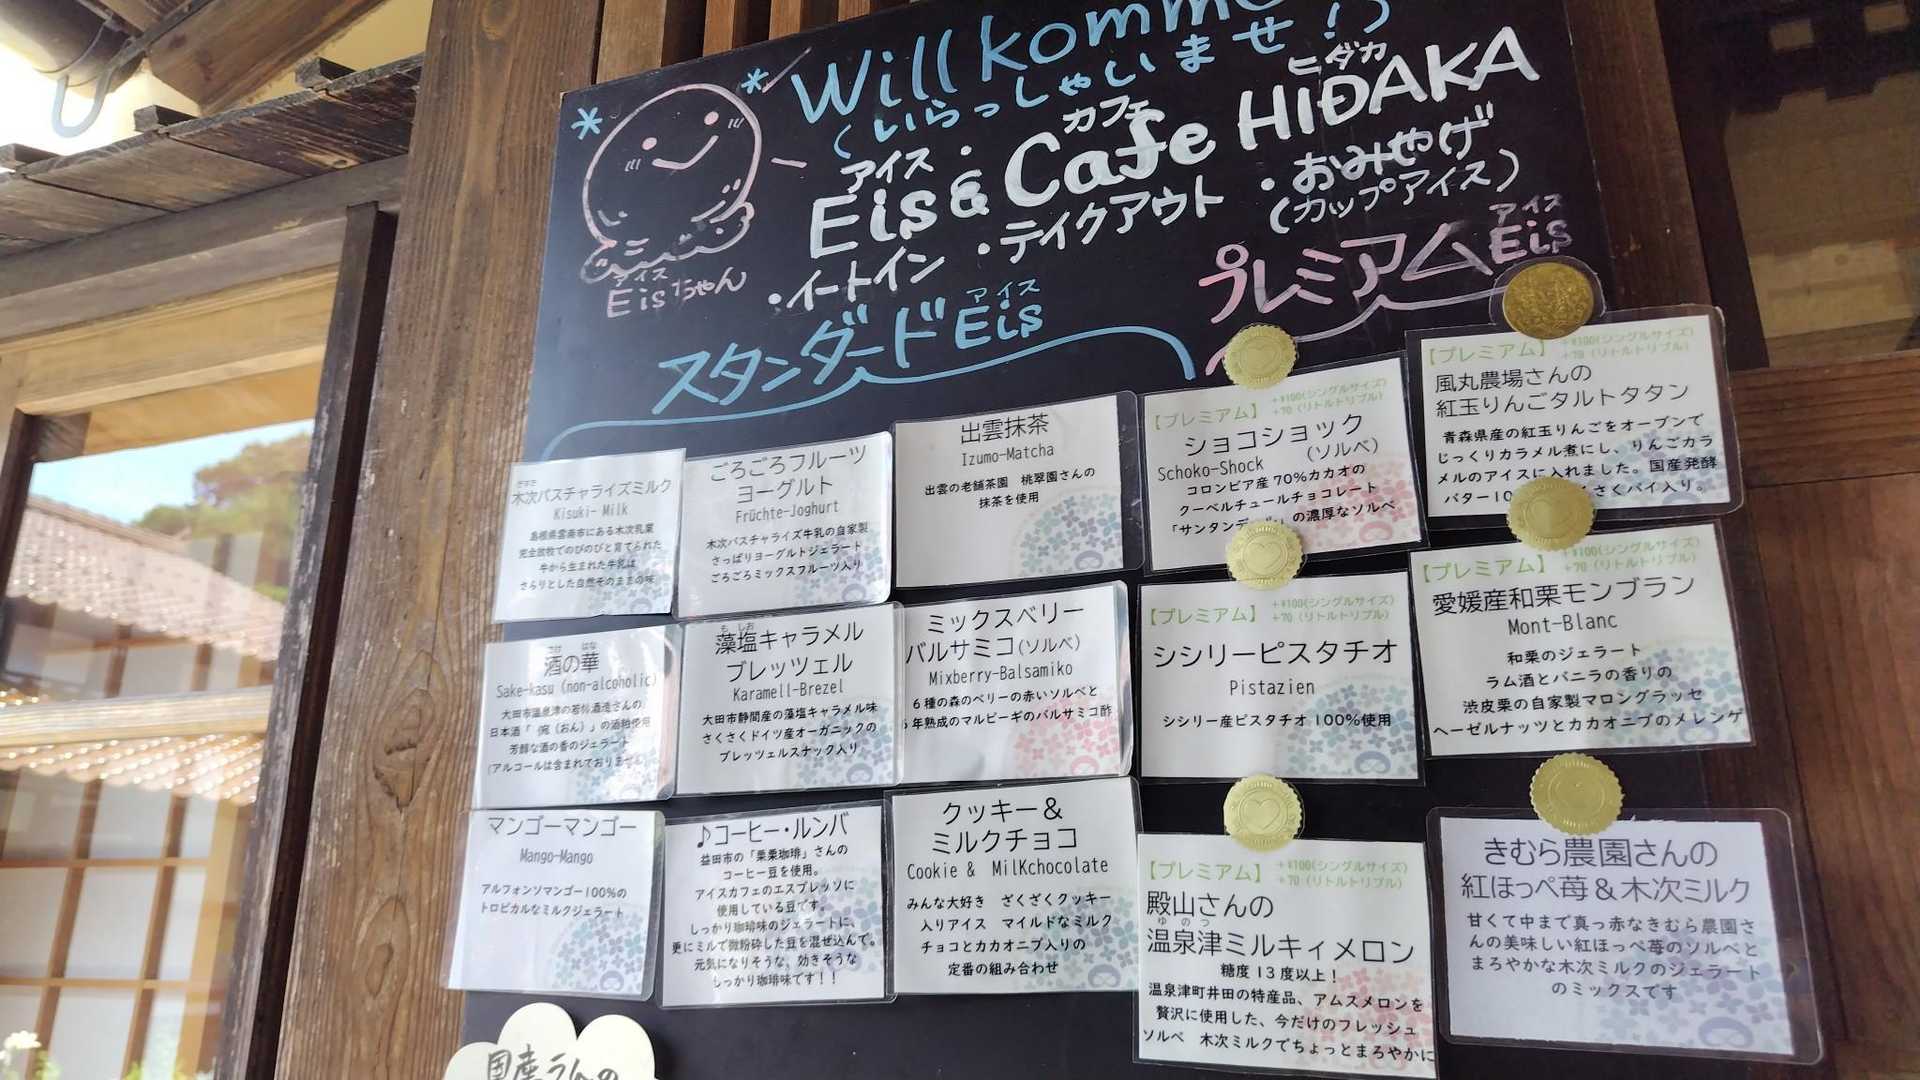 Willkomme
(いらっしゃいませ!)
アイス カフェ ヒダカ
Eis & Cafe HIDAKA
・イートイン ・テイクアウト ・おみやげ
(カップアイス)
アイス
Eisちゃん
アイス
スタンダードEis
アイス
プレミアムEis
きすき
木次パスチャライズミルク
Kisuki- Milk
島根県雲南市にある木次乳業
完全放牧でのびのびと育てられた
牛から生まれた牛乳は
さらりとした自然そのままの味
ごろごろフルーツ
ヨーグルト
Früchte-Joghurt
木次パスチャライズ牛乳の自家製
さっぱりヨーグルトジェラート
ごろごろミックスフルーツ入り
出雲抹茶
Izumo-Matcha
出雲の老舗茶園 桃翠園さんの
抹茶を使用
【プレミアム】
+¥100(シングルサイズ)
+70 (リトルトリプル)
ショコショック
Schoko-Shock (ソルベ)
コロンビア産70%カカオの
クーベルチュールチョコレート
「サンタンデ の濃厚なソルベ
【プレミアム】
+¥100(シングルサイズ)
+70 (リトルトリプル)
風丸農場さんの
紅玉りんごタルトタタン
青森県産の紅玉りんごをオーブンで
じっくりカラメル煮にし、りんごカラ
メルのアイスに入れました。国産発酵
バター10 くさくパイ入り。
さけ はな
酒の華
Sake-kasu (non-alcoholic)
大田市温泉津の若林酒造さんの
日本酒「 (おん)」の酒粕使用
芳醇な酒の香のジェラート
(アルコールは含まれておりません
も しお
藻塩キャラメル
ブレッツェル
Karamell-Brezel
大田市静間産の藻塩キャラメル味
さくさくドイツ産オーガニックの
ブレッツェルスナック入り
ミックスベリー
バルサミコ(ソルベ)
Mixberry-Balsamiko
6種の森のベリーの赤いソルベと
6年熟成のマルピーギのバルサミコ酢
【プレミアム】
+¥100(シングルサイズ)
+70 (リトルトリプル)
シシリーピスタチオ
Pistazien
シシリー産ピスタチオ100%使用
【プレミアム】
+¥100(シングルサイズ)
+70 (リトルトリプル)
愛媛産和栗モンブラン
Mont-Blanc
和栗のジェラート
ラム酒とバニラの香りの
渋皮栗の自家製マロングラッセ
ヘーゼルナッツとカカオニブのメレンゲ
マンゴーマンゴー
Mango-Mango
アルフォンソマンゴー100%の
トロピカルなミルクジェラート
♪コーヒー・ルンバ
益田市の「栗栗珈琲」さんの
コーヒー豆を使用。
アイスカフェのエスプレッソに
使用している豆です。
しっかり珈琲味のジェラートに、
更にミルで微粉砕した豆を混ぜ込んで。
元気になりそうな、効きそうな
しっかり珈琲味です!!
クッキー&
ミルクチョコ
Cookie & MilKchocolate
みんな大好き ざくざくクッキー
入りアイス マイルドなミルク
チョコとカカオニブ入りの
定番の組み合わせ
【プレミアム】
+¥100(シングルサイズ)
+70 (リトルトリプル)
殿山さんの
ゆのつ
温泉津ミルキィメロン
糖度13度以上!
温泉津町井田の特産品、アムスメロンを
贅沢に使用した、今だけのフレッシュ
ソルベ 木次ミルクでちょっとまろやかに
きむら農園さんの
紅ほっぺ苺&木次ミルク
甘くて中まで真っ赤なきむら農園さ
んの美味しい紅ほっぺ苺のソルベと
まろやかな木次ミルクのジェラート
のミックスです
国産